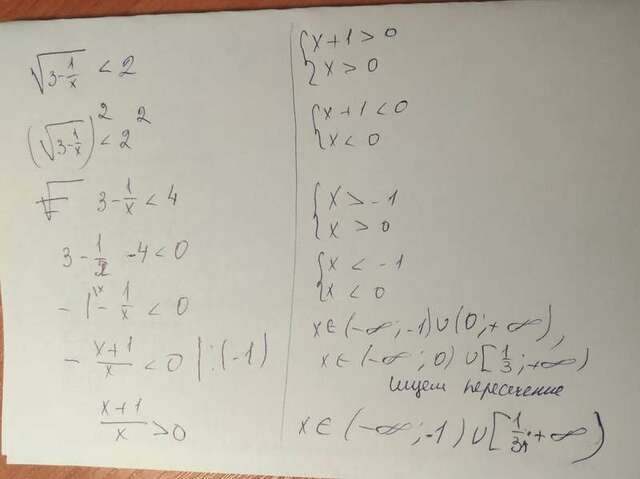 √(3-1/x) < 2
(√(3-1/x))² < 2²
3-1/x < 4
3-1/x -4<0
-1-1/x < 0
-(x+1)/x < 0 |:(-1)
(x+1)/x > 0
{x+1>0
x>0
{x+1<0
x<0
{x>-1
x>0
{x<-1
x<0
x∈(-∞;-1)∪(0;+∞),
x∈(-∞;0)∪[1/3;+∞)
ищем пересечение
x∈(-∞;-1)∪[1/3;+∞)